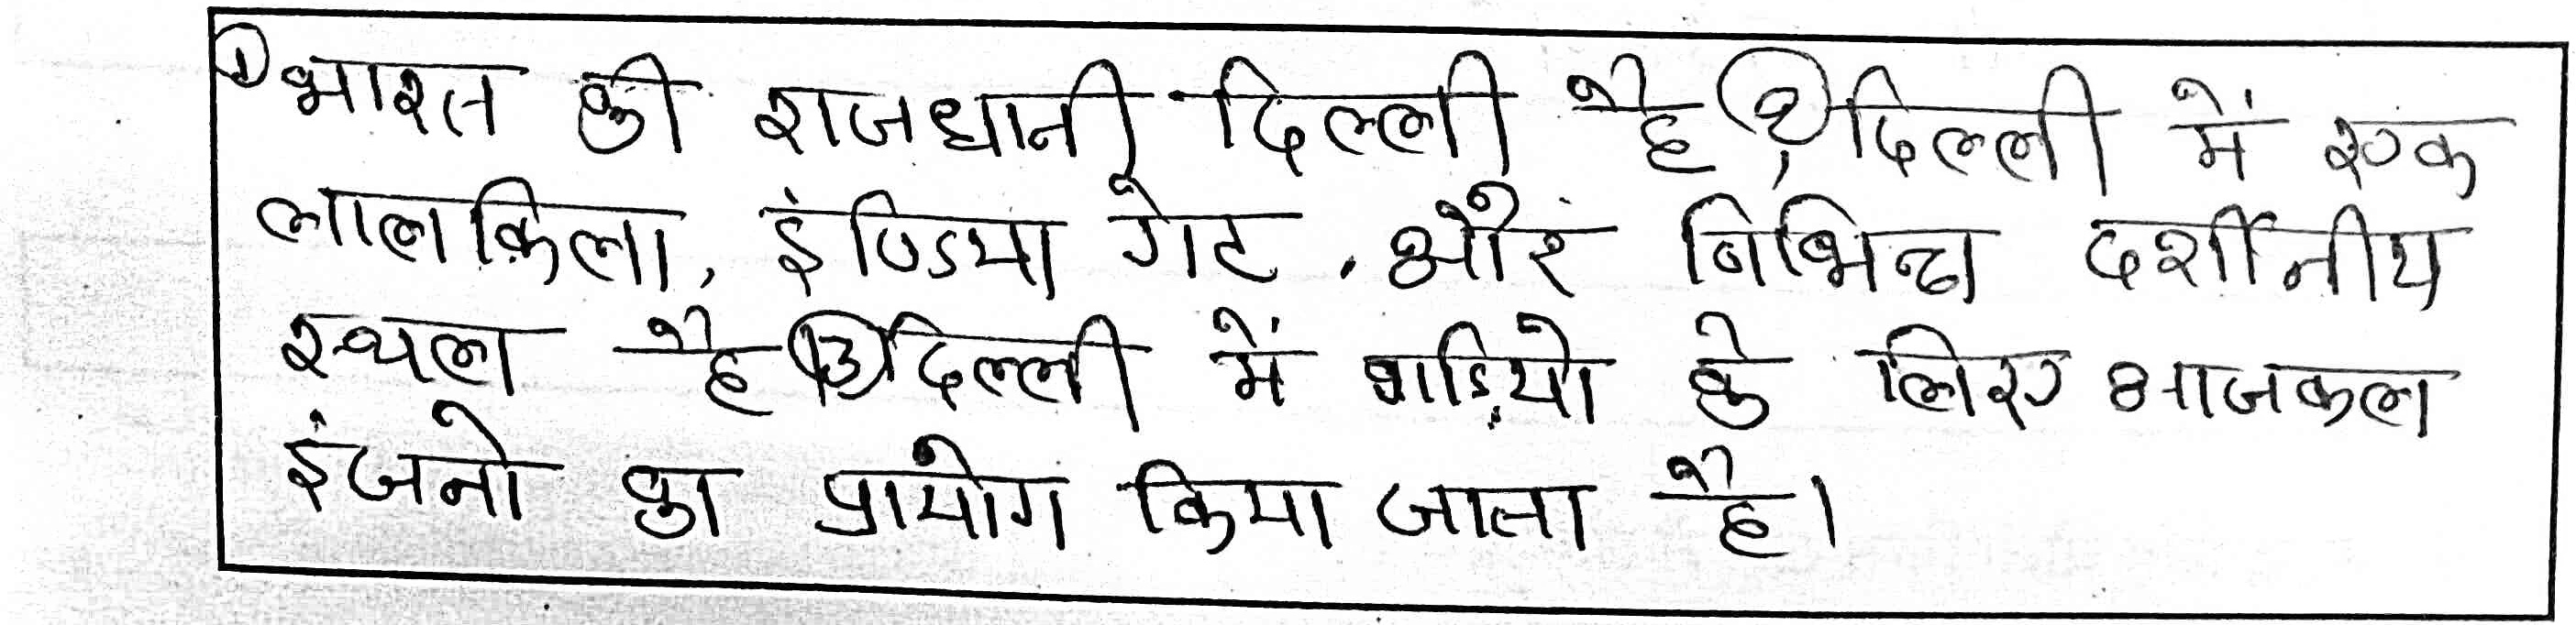 ① भारत की राजधानी दिल्ली है ② दिल्ली में एक
लालकिला, इंण्डिया गेट, और विभिन्न दर्शीनीय
स्थल है ③ दिल्ली में गाड़ियो के लिए आजकल
इंजनो का प्रायोग किया जाता है।